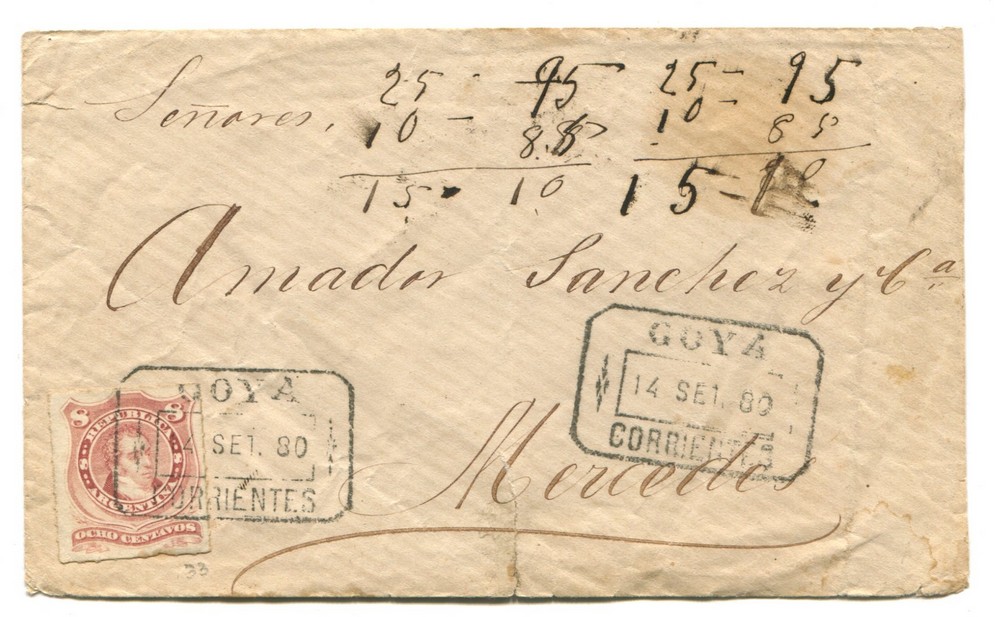 25 - 95
10 - 85
15 - 10
25 - 95
10 - 85
15 - 10
Señores,
Amador Sanchez y Cª
Mercedes
GOYA
14 SET. 80
CORRIENTES
GOYA
14 SET. 80
CORRIENTES
8 8
REPUBLICA
8 8
ARGENTINA
OCHO CENTAVOS
33